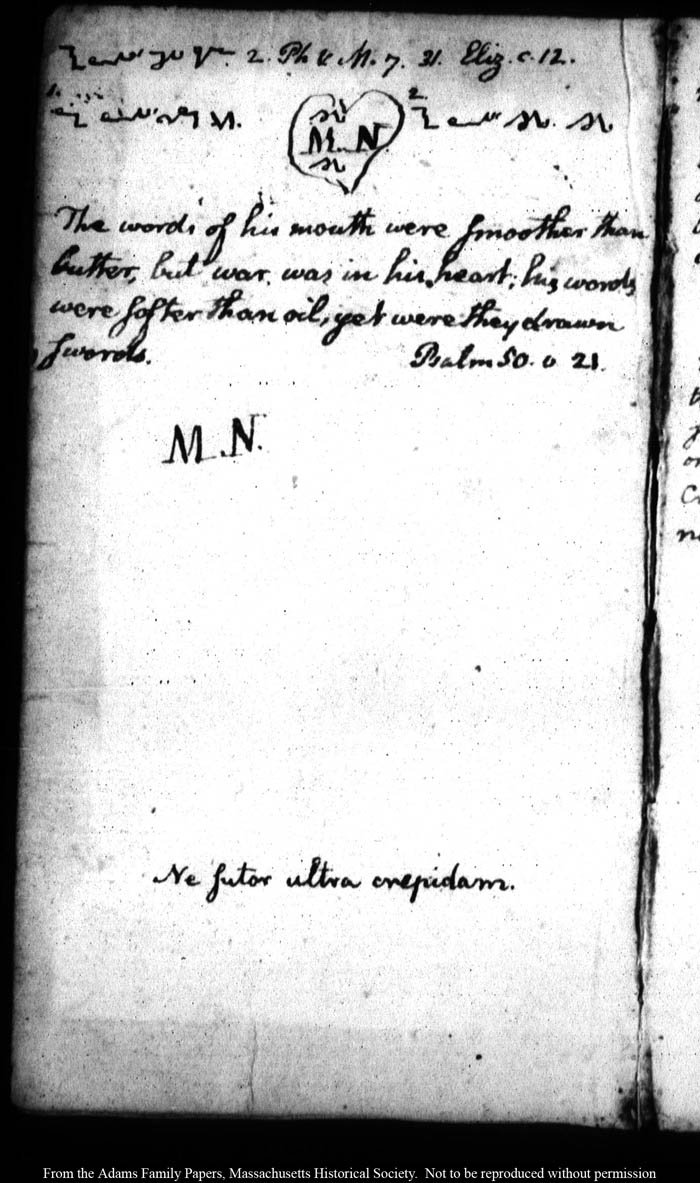 2. Ph & M. 7. 31. Eliz. c. 12.
1.
M.
M. N
2.
The words of his mouth were smoother than
butter, but war was in his heart; his words
were softer than oil, yet were they drawn
swords. Psalm 50. v 21.
M. N.
Ne sutor ultra crepidam.
From the Adams Family Papers, Massachusetts Historical Society. Not to be reproduced without permission